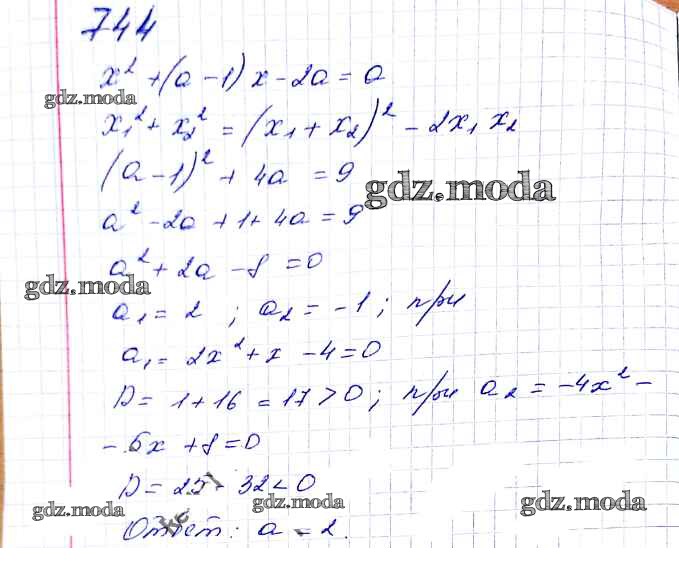 744
x² + (a - 1) x - 2a = a
gdz.moda
x₁² + x₂² = (x₁ + x₂)² - 2x₁ x₂
(a - 1)² + 4a = 9
gdz.moda
a² - 2a + 1 + 4a = 9
a² + 2a - 8 = 0
gdz.moda
a₁ = 2 ; a₂ = -1 ; при
a₁ = 2x² + x - 4 = 0
D = 1 + 16 = 17 > 0 ; при a₂ = -4x² -
- 5x + 8 = 0
D = 25 - 32 < 0
gdz.moda gdz.moda gdz.moda
Ответ: a = 2.